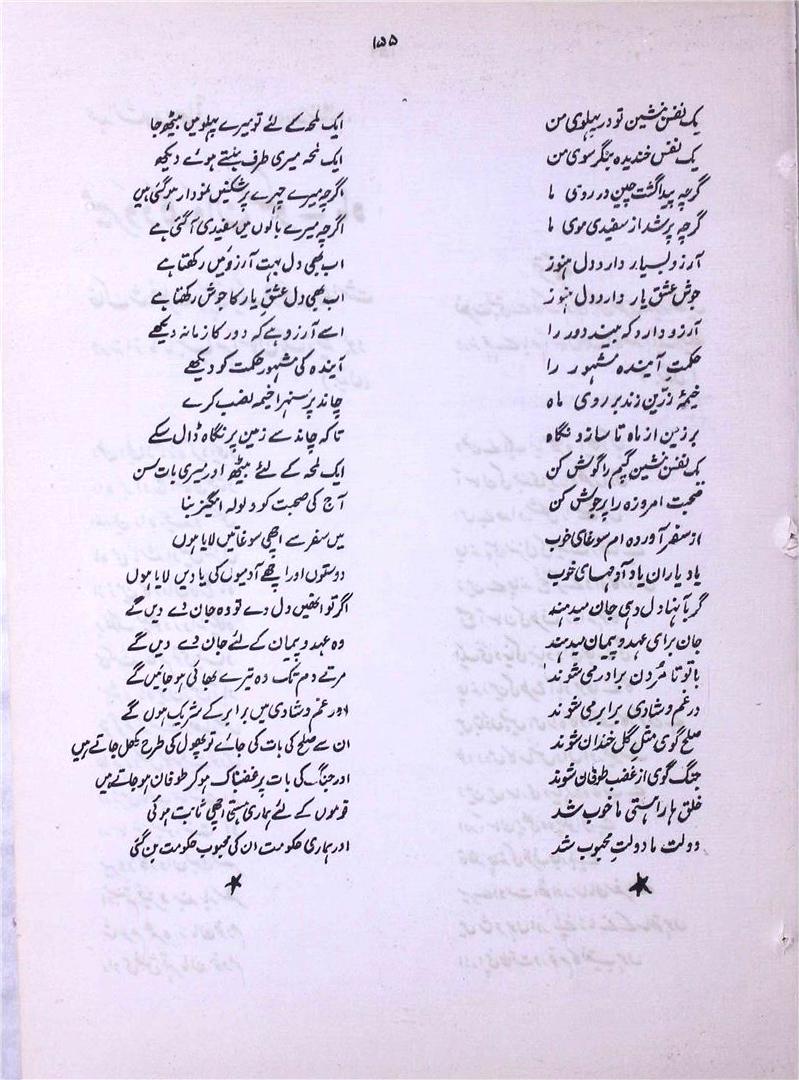 ۱۵۵
یک نفس بنشین تو در پہلوی من
یک نفس خندیده بنگر سوی من
گرچہ پیدا گشت چین در روی ما
گرچہ پر شد از سفیدی موی ما
آرزو بسیار دارد دل ہنوز
جوش عشق یار دارد دل ہنوز
آرزو دارد کہ بیند دور را
حکمتِ آیندہ مشہور را
خیمۂ زرّین زند بر روی ماہ
بر زمین از ماہ تا سازد نگاہ
یک نفس بنشین گپم را گوش کن
صحبت امروزہ را پر جوش کن
از سفر آوردہ ام سوغای خوب
یاد یاران یاد آدمہای خوب
گر بآنہا دل دہی جان میدہند
جان برای عہد و پیمان میدہند
با تو تا مُردن برادر می شوند
در غم و شادی برابر می شوند
صلح گوی مثلِ گل خندان شوند
جنگ گوی از غضب طوفان شوند
خلق ہا را ہستی ما خوب شد
دولت ما دولتِ محبوب شد
ایک لمحہ کے لئے تو میرے پہلو میں بیٹھ جا
ایک لمحہ میری طرف ہنستے ہوئے دیکھ
اگرچہ میرے چہرے پر شکنیں نمودار ہو گئی ہیں
اگرچہ میرے بالوں میں سفیدی آ گئی ہے
اب بھی دل بہت آرزوئیں رکھتا ہے
اب بھی دل عشقِ یار کا جوش رکھتا ہے
اسے آرزو ہے کہ دور کا زمانہ دیکھے
آیندہ کی مشہور حکمت کو دیکھے
چاند پر سنہرا خیمہ نصب کرے
تاکہ چاند سے زمین پر نگاہ ڈال سکے
ایک لمحہ کے لئے بیٹھ اور میری بات سن
آج کی صحبت کو ولولہ انگیز بنا
میں سفر سے اچھی سوغاتیں لایا ہوں
دوستوں اور اچھے آدمیوں کی یادیں لایا ہوں
اگر تو انھیں دل دے تو وہ جان دے دیں گے
وہ عہد و پیمان کے لئے جان دے دیں گے
مرتے دم تک وہ تیرے بھائی ہو جائیں گے
اور غم و شادی میں برابر کے شریک ہوں گے
ان سے صلح کی بات کی جائے تو پھول کی طرح کھل جاتے ہیں
اور جنگ کی بات پر غضبناک ہو کر طوفان ہو جاتے ہیں
قوموں کے لئے ہماری ہستی اچھی ثابت ہوئی
اور ہماری حکومت ان کی محبوب حکومت بن گئی